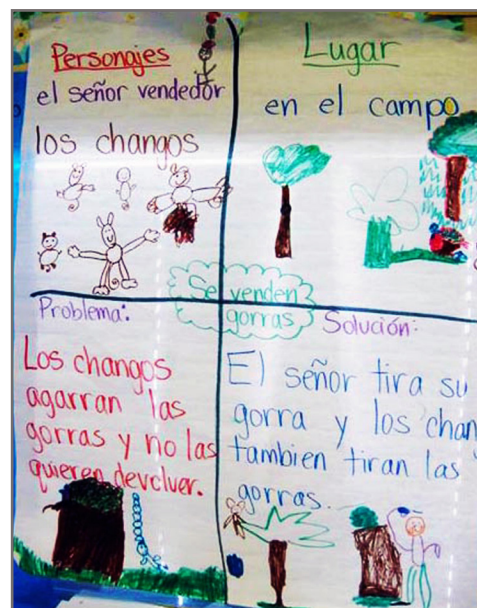 Personajes
el señor vendedor
los changos
Lugar
en el campo
Se venden
gorras
Problema:
Los changos
agarran las
gorras y no las
quieren devolver.
Solución:
El señor tira su
gorra y los chan
tambien tiran las
gorras.